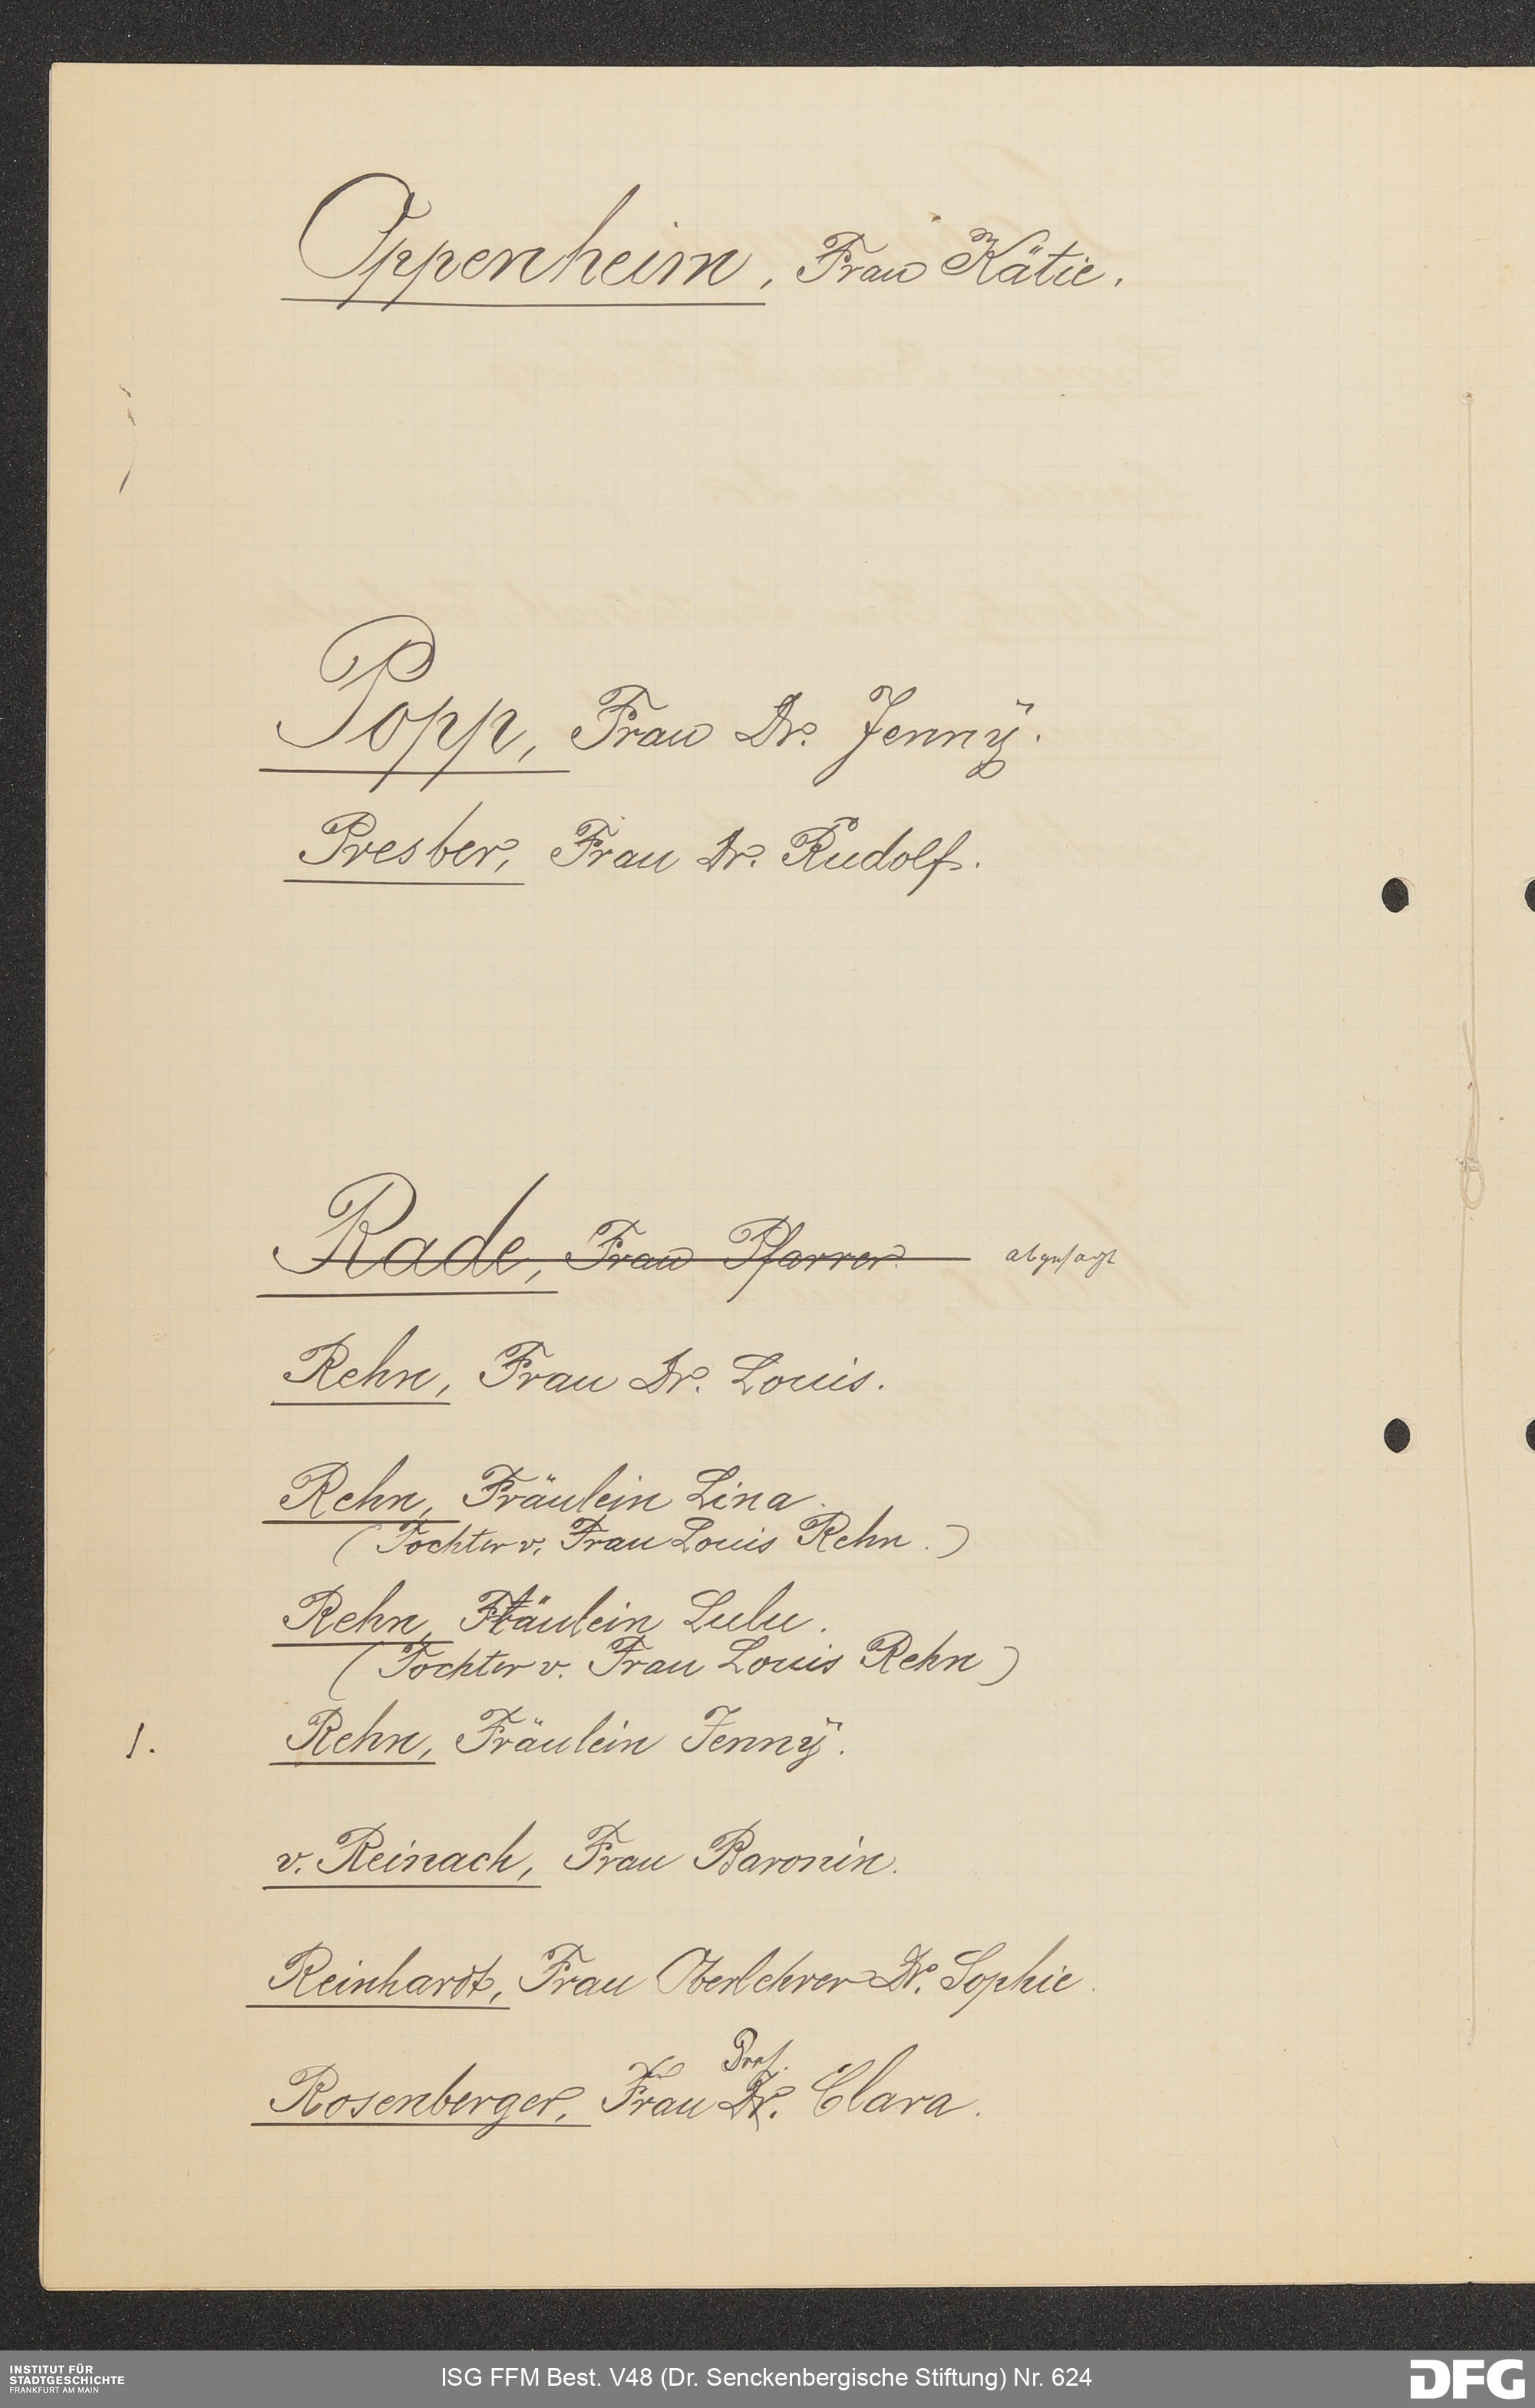 Oppenheim, Frau Kätie.
Popp, Frau Dr. Jenny.
Presber, Frau Dr. Rudolf.
Rade, Frau Pfarrer. abgesagt
Rehn, Frau Dr. Louis.
Rehn, Fräulein Lina.
(Tochter v. Frau Louis Rehn.)
Rehn, Fräulein Lulu.
(Tochter v. Frau Louis Rehn)
1. Rehn, Fräulein Jenny.
v. Reinach, Frau Baronin.
Reinhardt, Frau Oberlehrer Dr. Sophie.
Prof.
Rosenberger, Frau Dr. Clara.
INSTITUT FÜR
STADTGESCHICHTE
FRANKFURT AM MAIN
ISG FFM Best. V48 (Dr. Senckenbergische Stiftung) Nr. 624
DFG